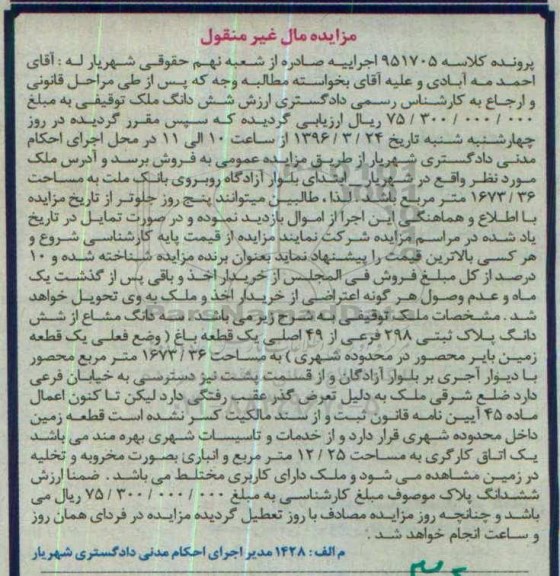 مزایده مال غیر منقول
پرونده کلاسه ۹۵۱۷۰۵ اجراییه صادره از شعبه نهم حقوقی شهریار له : آقای
احمد مه آبادی و علیه آقای بخواسته مطالبه وجه که پس از طی مراحل قانونی
و ارجاع به کارشناس رسمی دادگستری ارزش شش دانگ ملک توقیفی به مبلغ
۷۵/۳۰۰/۰۰۰/۰۰۰ ریال ارزیابی گردیده که سپس مقرر گردیده در روز
چهارشنبه شنبه تاریخ ۱۳۹۶/۳/۲۴ از ساعت ۱۰ الی ۱۱ در محل اجرای احکام
مدنی دادگستری شهریار از طریق مزایده عمومی به فروش برسد و آدرس ملک
مورد نظر واقع در شهریار ابتدای بلوار آزادگاه روبروی بانک ملت به مساحت
۱۶۷۳/۳۶ متر مربع باشد. لذا ، طالبین میتوانند پنج روز جلوتر از تاریخ مزایده
با اطلاع و هماهنگی این اجرا از اموال بازدید نموده و در صورت تمایل در تاریخ
یاد شده در مراسم مزایده شرکت نمایند مزایده از قیمت پایه کارشناسی شروع و
هر کسی بالاترین قیمت را پیشنهاد نماید بعنوان برنده مزایده شناخته شده و ۱۰
درصد از کل مبلغ فروش فی المجلس از خریدار اخذ و باقی پس از گذشت یک
ماه و عدم وصول هر گونه اعتراضی از خریدار اخذ و ملک به وی تحویل خواهد
شد . مشخصات ملک توقیفی به شرح زیر می باشد دانگ مشاع از شش
دانگ پلاک ثبتی ۲۹۸ فرعی از ۴۹ اصلی یک قطعه باغ ( وضع فعلی یک قطعه
زمین بایر محصور در محدوده شهری ) به مساحت ۱۶۷۳/۳۶ متر مربع محصور
با دیوار آجری بر بلوار آزادگان و از قسمت پشت نیز دسترسی به خیابان فرعی
دارد ضلع شرقی ملک به دلیل تعرض گذر عقب رفتگی دارد لیکن تا کنون اعمال
ماده ۴۵ آیین نامه قانون ثبت و از سند مالکیت کسر نشده است قطعه زمین
داخل محدوده شهری قرار دارد و از خدمات و تاسیسات شهری بهره مند می باشد
یک اتاق کارگری به مساحت ۱۲/۲۵ متر مربع و انباری بصورت مخروبه و تخلیه
در زمین مشاهده می شود و ملک دارای کاربری مختلط می باشد . ضمنا ارزش
ششدانگ پلاک موصوف مبلغ کارشناسی به مبلغ ۷۵/۳۰۰/۰۰۰/۰۰۰ ریال می
باشد و چنانچه روز مزایده مصادف با روز تعطیل گردیده مزایده در فردای همان روز
و ساعت انجام خواهد شد .
م الف : ۱۴۲۸ مدیر اجرای احکام مدنی دادگستری شهریار